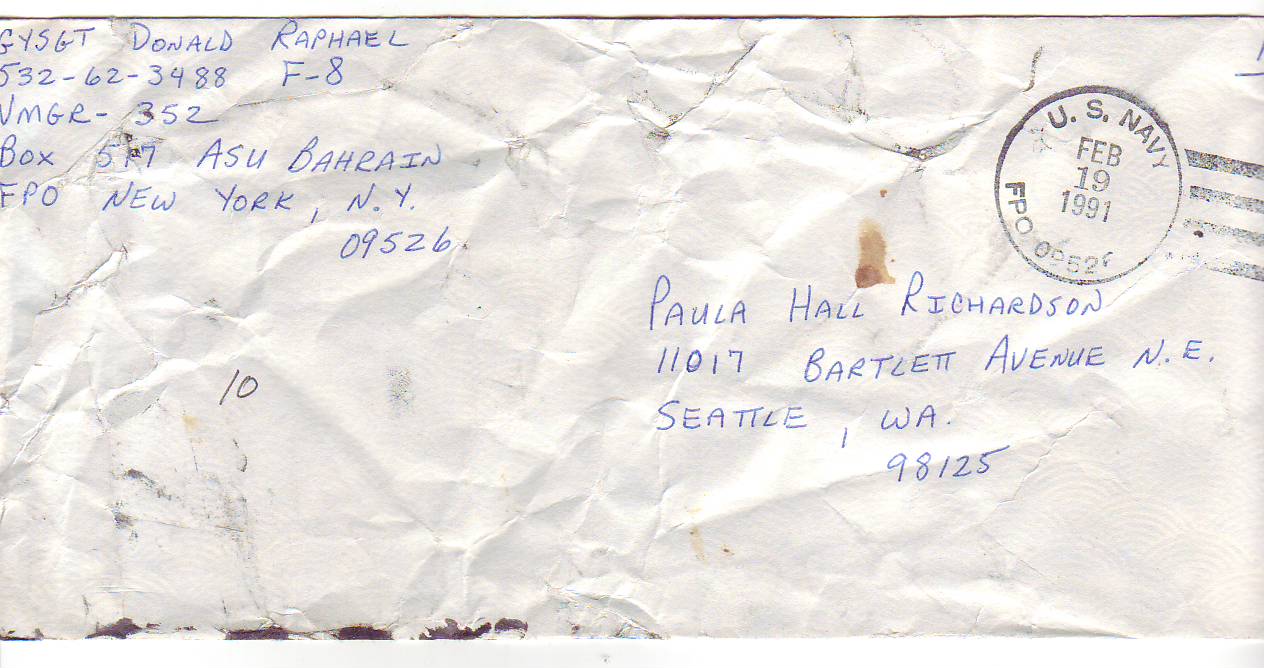 GYSGT DONALD RAPHAEL
532-62-3488 F-8
VMGR-352
BOX 517 ASU BAHRAIN
FPO NEW YORK, N.Y.
09526
U.S. NAVY
FEB
19
1991
FPO
PAULA HALL RICHARDSON
11017 BARTLETT AVENUE N.E.
SEATTLE, WA.
98125
10